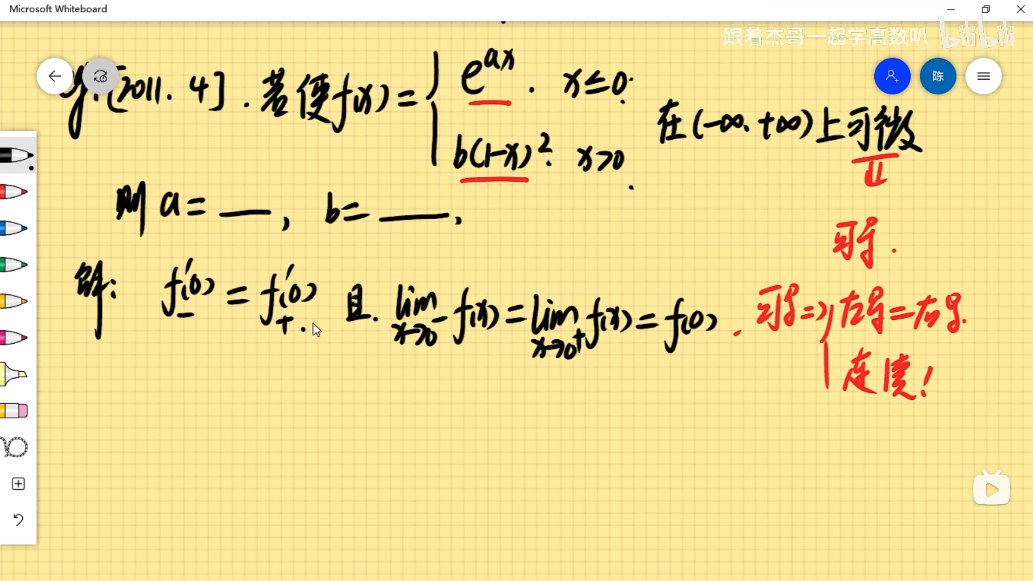 Microsoft Whiteboard
跟着杰哥一起学高数叭 bilibili
陈
[2011.4]. 若使f(x)={ e^{ax}. x≤0.
b(1-x)². x>0.
在(-∞.+∞)上可微
则 a=__, b=___.
可导.
解: f₋'(0) = f₊'(0) 且. lim_{x→0⁻} f(x) = lim_{x→0⁺} f(x) = f(0).
可导=> 左导=右导.
连续!